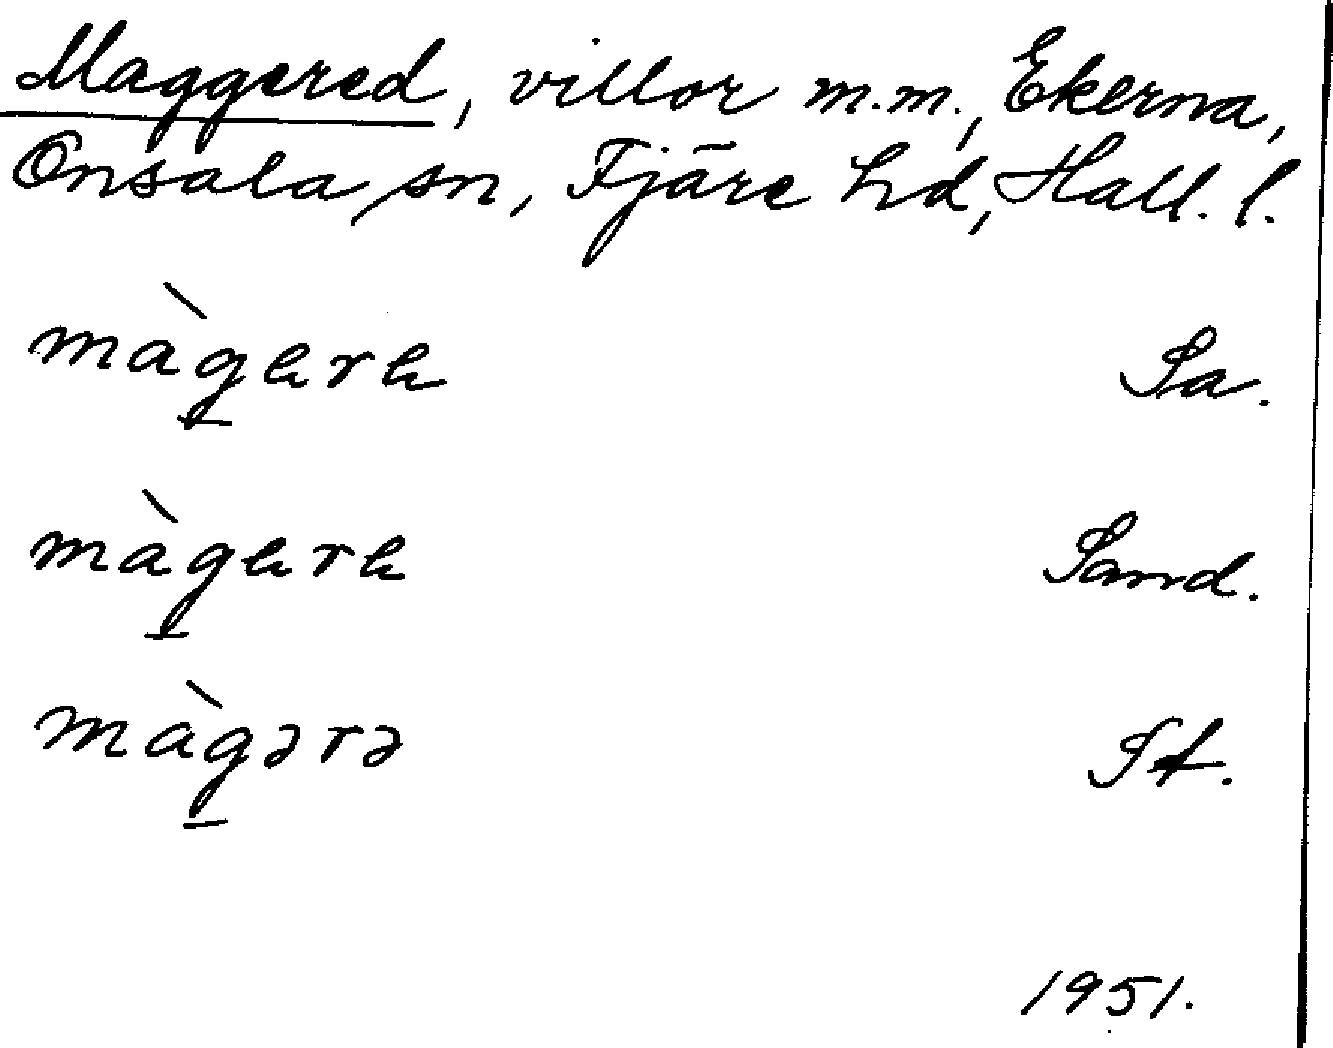 Maggered, villor m.m., Ekerna,
Onsala sn, Fjäre hd, Hall. l.
màgere Sa.
màgere Sand.
màgərə St.
1951.